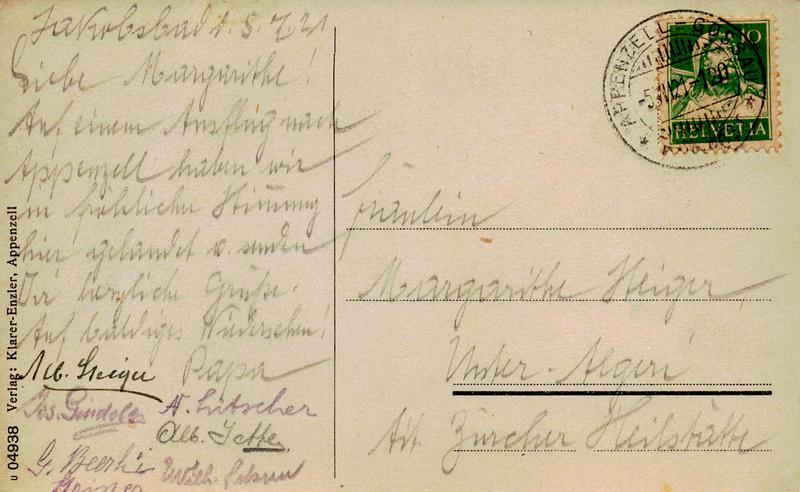 Jakobsbad d. 5. 7. 21
Liebe Margarithe!
Auf einem Ausflug nach
Appenzell haben wir
in fröhlicher Stimmung
hier gelandet u. senden
Dir herzliche Grüße.
Auf baldiges Wiedersehen!
Papa
Alb. Steiger
Jos. A. Lütscher
Alb.
G. Beerli
Wilh.
u 04938 Verlag: Klarer-Enzler, Appenzell
APPENZELL-GOSSAU
10
HELVETIA
Fräulein
Margarithe Steiger
Unter-Aegeri
Zürcher Heilstätte